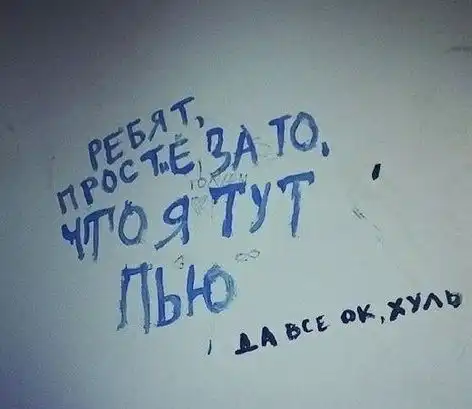 РЕБЯТ,
ПРОСТИЕ, ЗА ТО,
ЧТО Я ТУТ
ПЬЮ
ДА ВСЕ ОК, ХУЛЬ